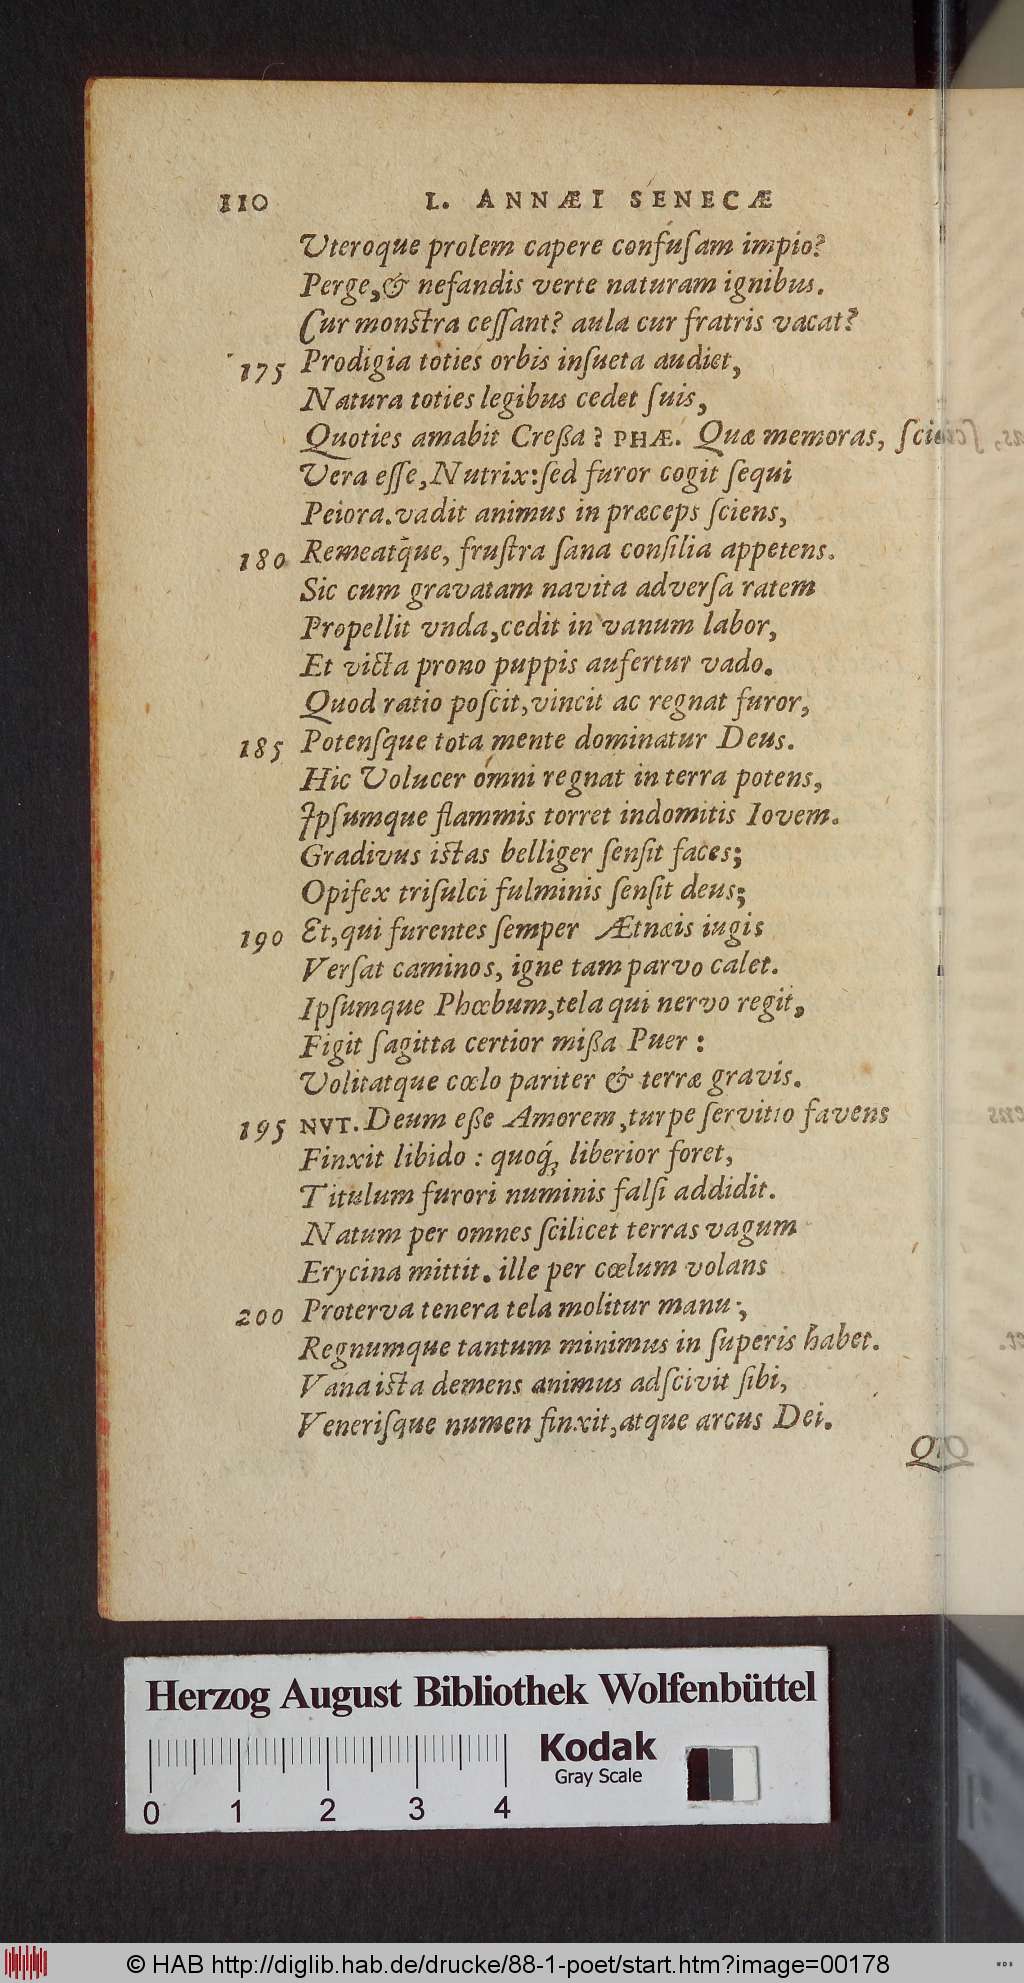 110 L. ANNÆI SENECÆ
Uteroque prolem capere confuſam impio?
Perge, & nefandis verte naturam ignibus.
Cur monſtra ceſſant? aula cur fratris vacat?
175 Prodigia toties orbis inſueta audiet,
Natura toties legibus cedet ſuis,
Quoties amabit Creßa? PHÆ. Quæ memoras, ſcio
Vera eſſe, Nutrix: ſed furor cogit ſequi
Peiora. vadit animus in præceps ſciens,
180 Remeatq̃ue, fruſtra ſana conſilia appetens.
Sic cum gravatam navita adverſa ratem
Propellit vnda, cedit in vanum labor,
Et victa prono puppis aufertur vado.
Quod ratio poſcit, vincit ac regnat furor,
185 Potenſque tota mente dominatur Deus.
Hic Volucer omni regnat in terra potens,
Ipſumque flammis torret indomitis Iovem.
Gradivus iſtas belliger ſenſit faces;
Opifex triſulci fulminis ſenſit deus;
190 Et, qui furentes ſemper Ætnæis iugis
Verſat caminos, igne tam parvo calet.
Ipſumque Phœbum, tela qui nervo regit,
Figit ſagitta certior mißa Puer:
Volitatque cœlo pariter & terræ gravis.
195 NVT. Deum eße Amorem, turpe ſervitio favens
Finxit libido: quoq́; liberior foret,
Titulum furori numinis falſi addidit.
Natum per omnes ſcilicet terras vagum
Erycina mittit. ille per cœlum volans
200 Proterva tenera tela molitur manu;
Regnumque tantum minimus in ſuperis habet.
Vana iſta demens animus adſcivit ſibi,
Veneriſque numen finxit, atque arcus Dei.
Herzog August Bibliothek Wolfenbüttel
Kodak
Gray Scale
0 1 2 3 4
© HAB http://diglib.hab.de/drucke/88-1-poet/start.htm?image=00178